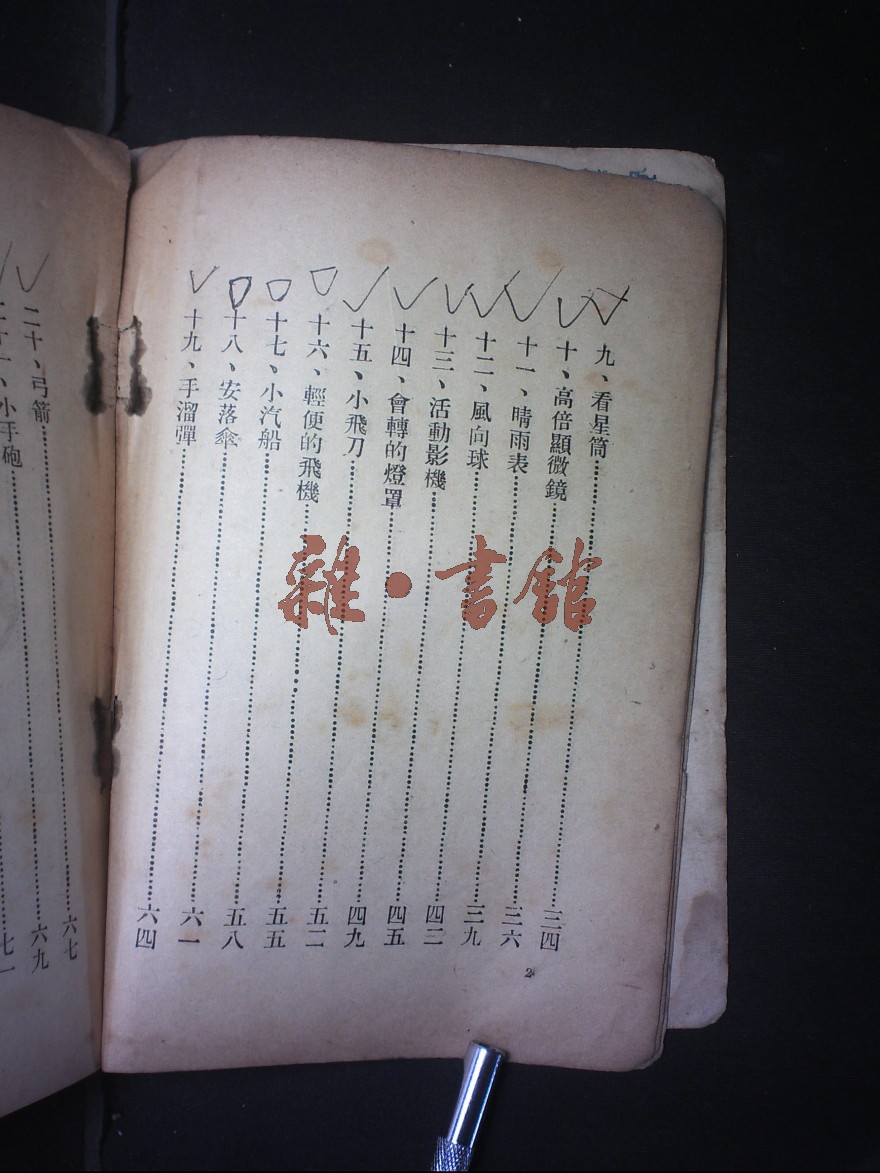 九、看星筒……三四
十、高倍顯微鏡……三六
十一、晴雨表……三九
十二、風向球……四二
十三、活動影機……四五
十四、會轉的燈罩……四九
十五、小飛刀……五二
十六、輕便的飛機……五五
十七、小汽船……五八
十八、安落傘……六一
十九、手溜彈……六四
2
二十、弓箭……六七
二十一、小手砲……六九
七一
雜·書館